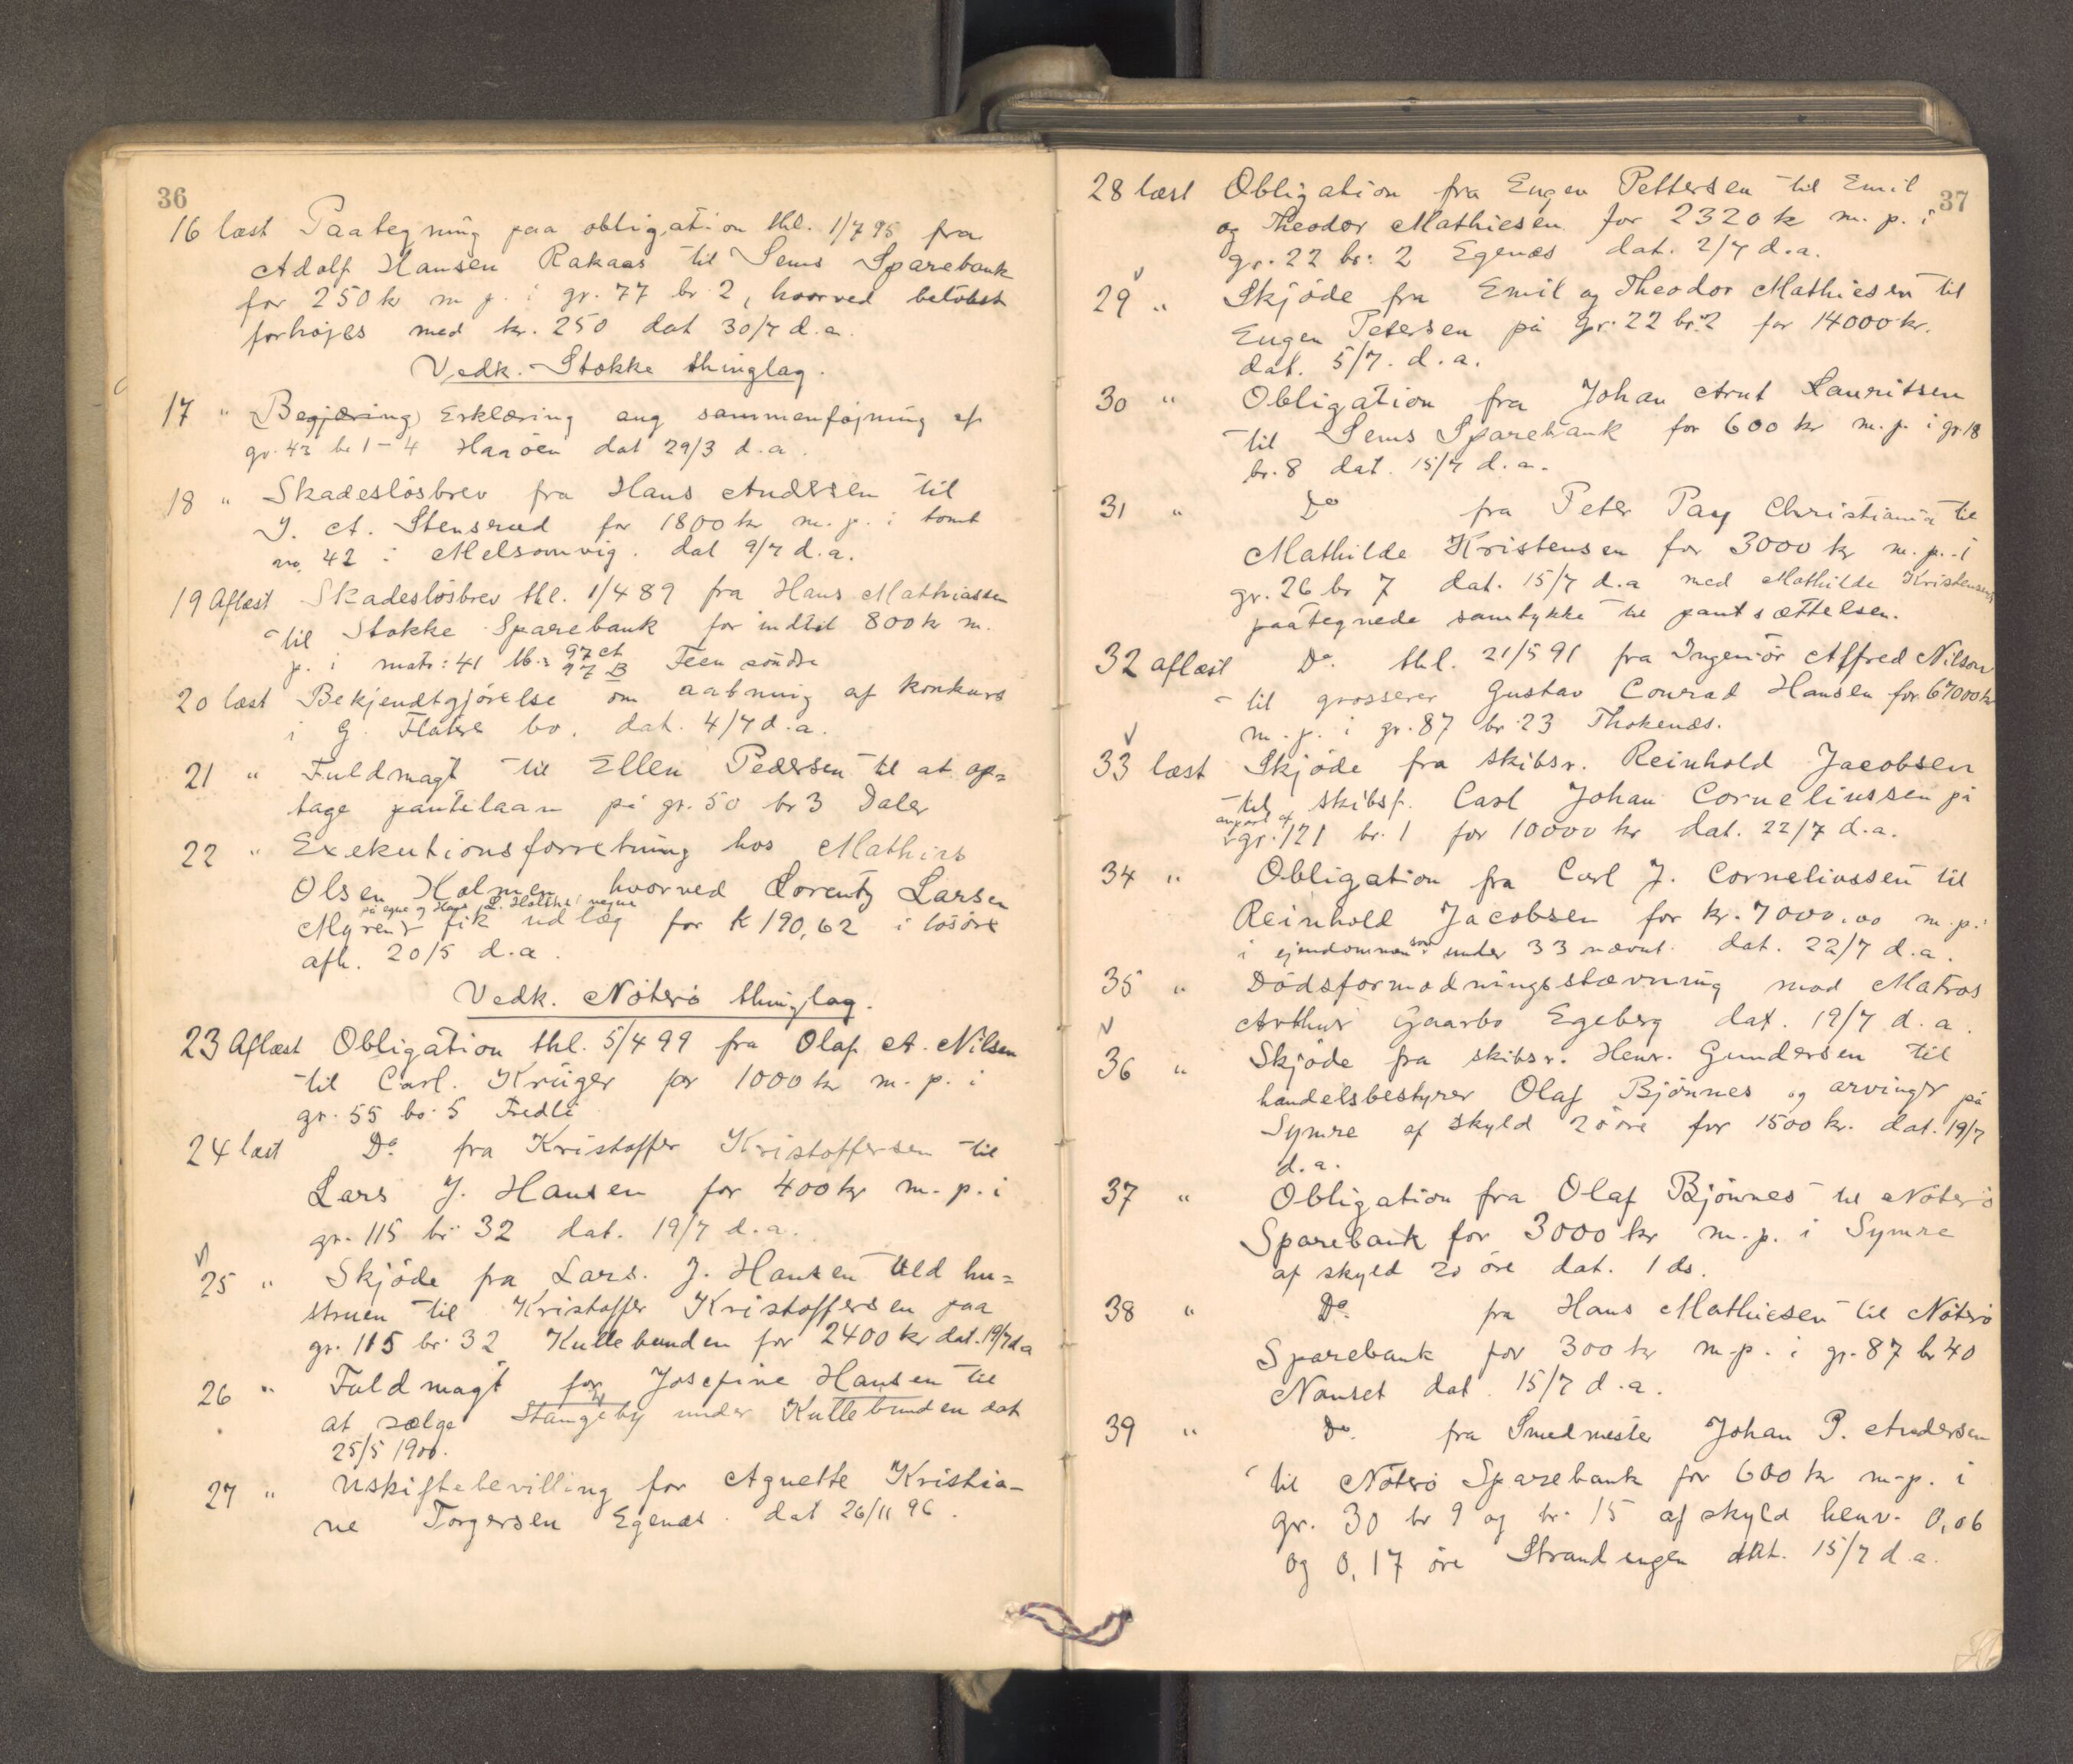 36
16 læst Paategning paa obligation thl. 1/7 95 fra
Adolf Hansen Rakaas til Sems Sparebank
for 250 kr m. p. i gr. 77 br 2, hvorved beløbet
forhøjes med kr. 250 dat 30/7 d.a.
Vedk. Stokke thinglag.
17 " Begjæring Erklæring ang sammenføjning af
gr. 43 br 1-4 Haaøen dat 29/3 d.a.
18 " Skadesløsbrev fra Hans Andersen til
J. A. Stensrud for 1800 kr m. p. i tomt
no. 42 i Melsomvig. dat 9/7 d.a.
19 Aflæst Skadesløsbrev thl. 1/4 89 fra Hans Mathiassen
til Stokke Sparebank for indtil 800 kr m.
p. i matr: 41 lb.: 97 A
97 B Feen søndre
20 læst Bekjendtgjørelse om aabning af konkurs
i G. Flåtre bo. dat. 4/7 d.a.
21 " Fuldmagt til Ellen Pedersen til at op=
tage pantelaan på gr. 50 br 3 Daler
22 " Exekutionsforretning hos Mathias
Olsen Holmen, hvorved Lorentz Larsen
på egne og Hans L. vegne
Myren fik udlæg for k 190,62 i løsøre
afh. 20/5 d.a.
Vedk. Nøterø thinglag.
23 Aflæst Obligation thl. 5/4 99 fra Olaf A. Nilsen
til Carl. Krüger for 1000 kr m. p. i
gr. 55 br. 5 Fredli
24 læst Do fra Kristoffer Kristoffersen til
Lars J. Hansen for 400 kr m. p. i
gr. 115 br 32 dat. 19/7 d.a.
25 " Skjøde fra Lars. J. Hansen til hu=
struen til Kristoffer Kristoffersen paa
gr. 115 br 32 Kullebunden for 2400 kr dat. 19/7 d a
26 " Fuldmagt for Josefine Hansen til
at sælge Stangeby under Kullebunden dat
25/5 1900.
27 " Uskiftebevilling for Agnette Kristia-
ne Torgersen Egenæs. dat 26/11 96.
37
28 læst Obligation fra Eugen Pettersen til Emil
og Theodor Mathiesen for 2320 k m. p. i
gr. 22 br: 2 Egenæs dat. 2/7 d.a.
29 " Skjøde fra Emil og Theodor Mathiesen til
Eugen Petersen på gr. 22 br. 2 for 14000 kr.
dat. 5/7. d.a.
30 " Obligation fra Johan Arnt Lauritsen
til Sems Sparebank for 600 kr m. p. i gr. 18
br. 8 dat. 15/7 d.a.
31 " Do fra Peter Pay Christiania til
Mathilde Kristensen for 3000 kr m. p. i
gr. 26 br 7 dat. 15/7 d.a med Mathilde Kristensens
paategnede samtykke til pantsættelsen.
32 aflæst Do. thl. 21/5 91 fra Ingeniør Alfred Nilson
til grosserer Gustav Conrad Hansen for 67000 kr
m. p. i gr. 87 br 23 Thokenæs.
33 læst Skjøde fra skibsr. Reinhold Jacobsen
til skibsf. Carl Johan Corneliussen på
anpart af
gr. 121 br. 1 for 10000 kr dat. 22/7 d.a.
34 " Obligation fra Carl J. Corneliussen til
Reinhold Jacobsen for kr. 7000.00 m. p.
i ejendommen som under 33 nævnt. dat. 22/7 d.a.
35 " Dødsformodningsstævning mod Matros
Arthur Gaarbo Egeberg dat. 19/7 d.a.
36 " Skjøde fra skibsr. Henr. Gundersen til
handelsbestyrer Olaf Bjønnes og arvinger på
Symre af skyld 20 øre for 1500 kr. dat. 19/7
d.a.
37 " Obligation fra Olaf Bjønnes til Nøterø
Sparebank for 3000 kr m. p. i Symre
af skyld 20 øre dat. 1 ds.
38 " Do. fra Hans Mathiesen til Nøterø
Sparebank for 300 kr m. p. i gr. 87 br 40
Nauset dat. 15/7 d.a.
39 " Do. fra Smedmester Johan P. Andersen
til Nøterø Sparebank for 600 kr m. p. i
gr. 30 br 9 og br. 15 af skyld henv. 0,06
og 0,17 øre Strandengen dat. 15/7 d.a.